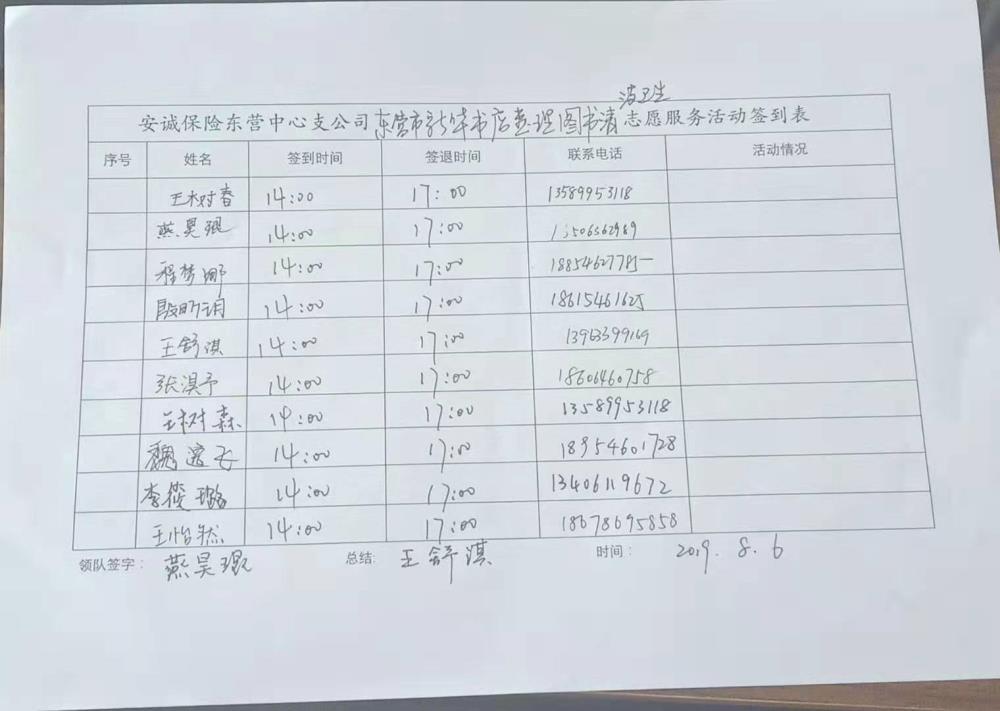 洁卫生
安诚保险东营中心支公司东营市新华书店整理图书清志愿服务活动签到表
序号 姓名 签到时间 签退时间 联系电话 活动情况
王树春 14:00 17:00 13589953118
燕昊琨 14:00 17:00 13506362989
程梦娜 14:00 17:00 18854627785
段昕玥 14:00 17:00 18615461625
王舒淇 14:00 17:00 13963399169
张淏予 14:00 17:00 18606460758
王树森 14:00 17:00 13589953118
魏 14:00 17:00 18954601728
李筱璐 14:00 17:00 13406119672
王怡然 14:00 17:00 18678695858
领队签字： 燕昊琨 总结: 王舒淇 时间： 2019.8.6